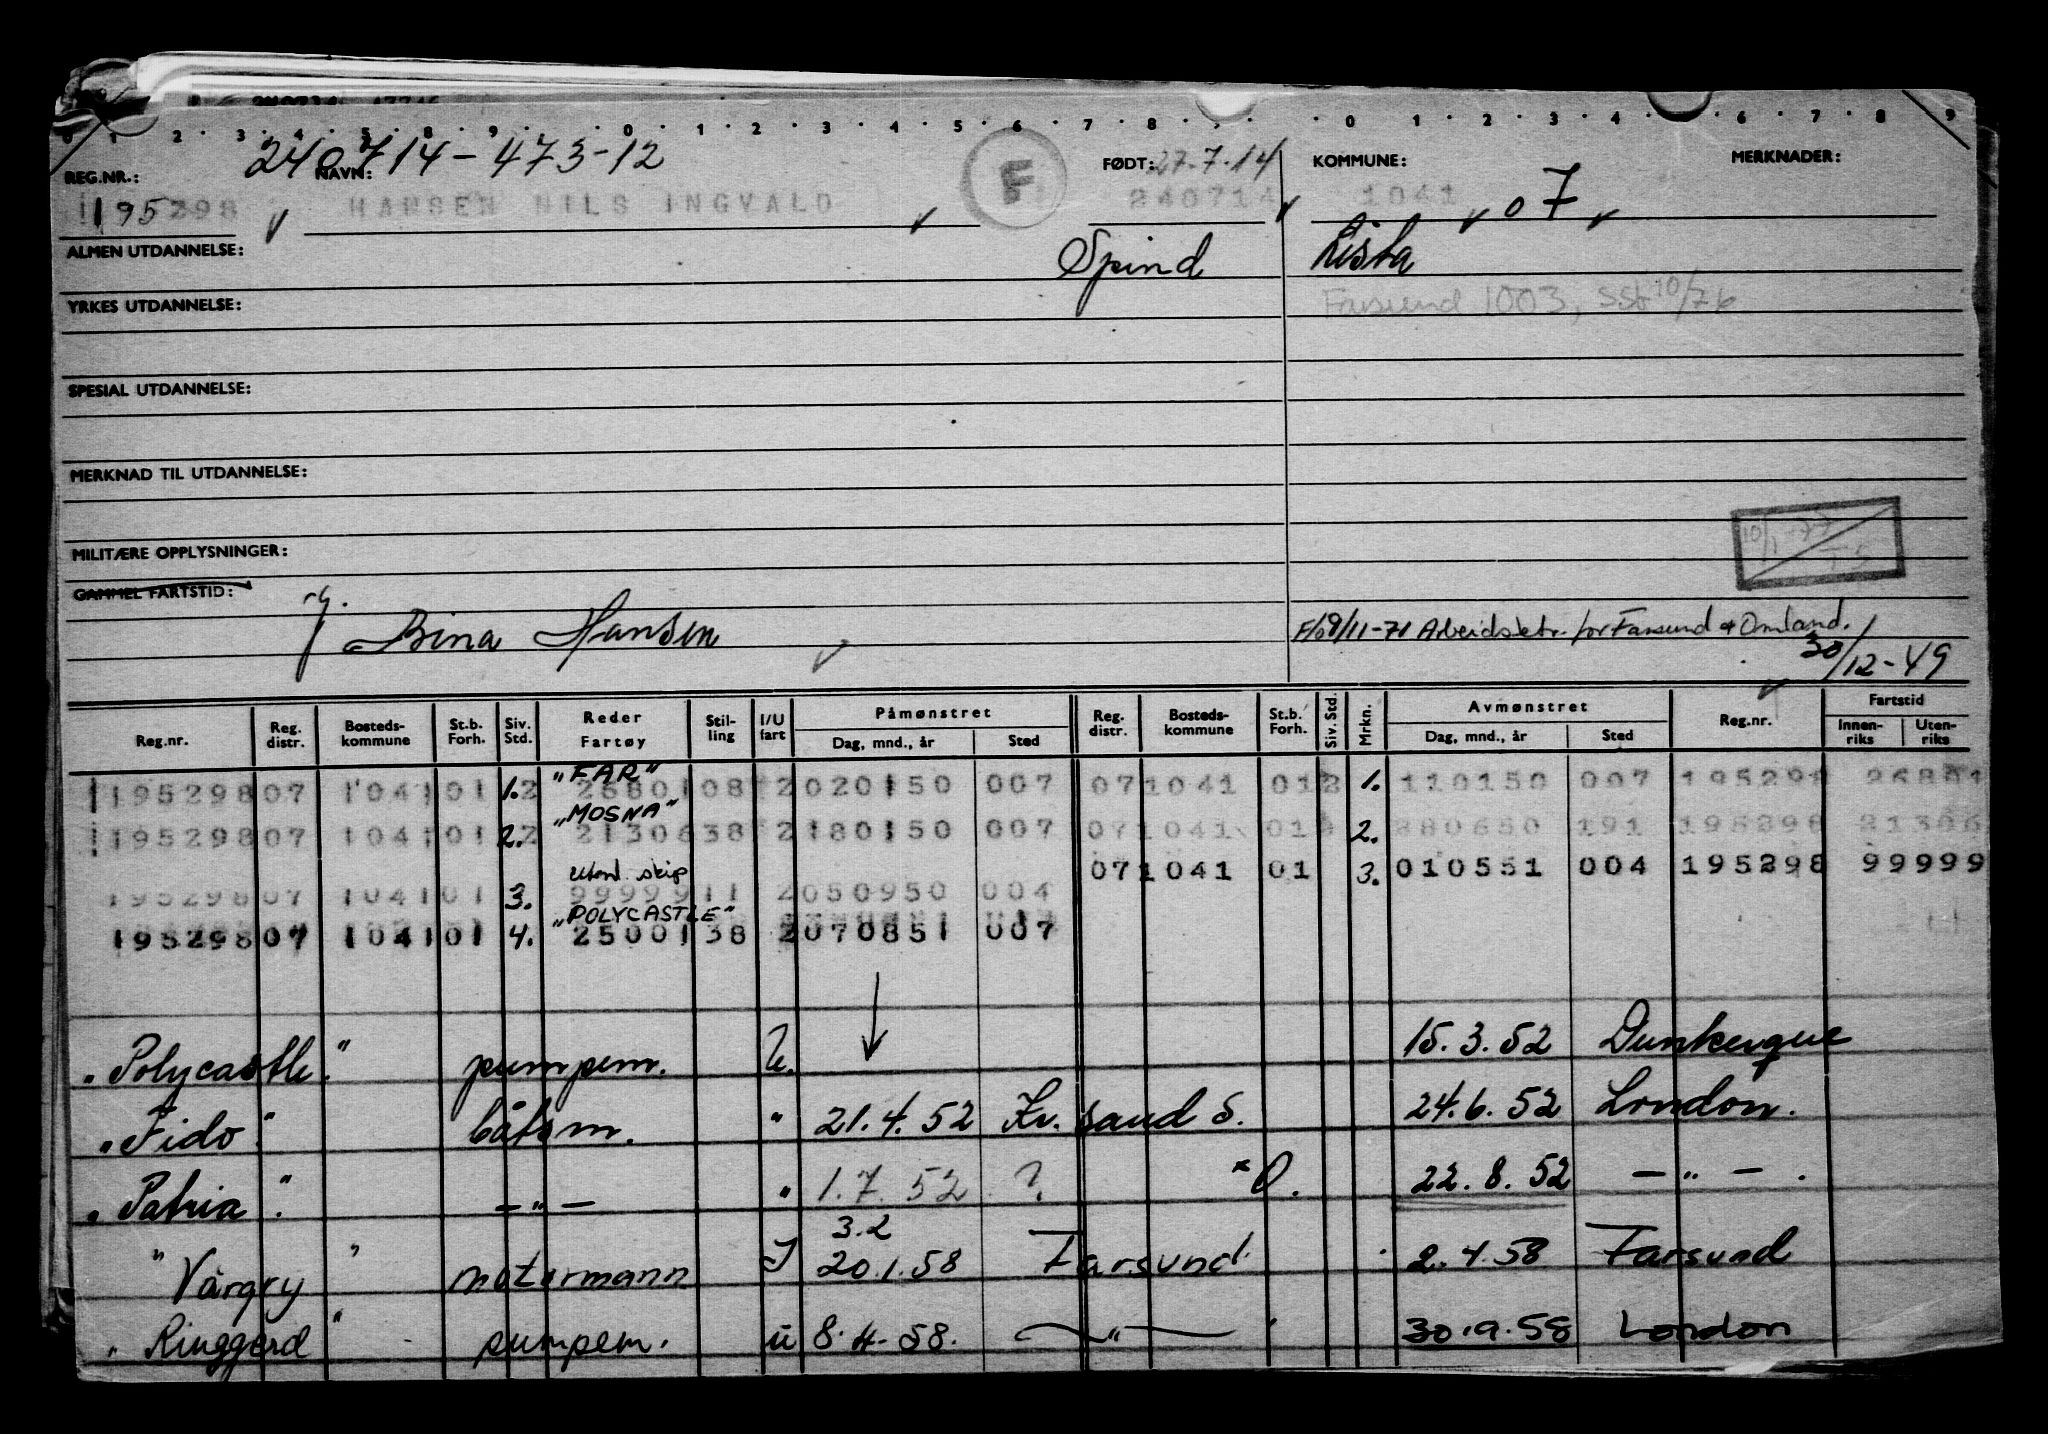 0 1 2 3 4 5 8 9 0 1 2 3 4 5 6 7 8 0 1 2 3 4 6 7 8 9
240714-473-12
REG.NR.: NAVN: F FØDT: 27.7.14 KOMMUNE: MERKNADER:
195298 HANSEN NILS INGVALD 240714 1041 07
ALMEN UTDANNELSE: Spind Lista
YRKES UTDANNELSE: Farsund 1003, SSb 10/76
SPESIAL UTDANNELSE:
MERKNAD TIL UTDANNELSE:
10/1-77 TS
MILITÆRE OPPLYSNINGER:
GAMMEL FARTSTID:
g. Bina Hansen
9/11-71 Arbeidsktr. for Farsund & Omland.
30/12-49
Reg.nr. Reg. distr. Bosteds-kommune St.b. Forh. Siv. Std. Reder Fartøy Stil-ling I/U fart Påmønstret Dag, mnd., år Sted Reg. distr. Bosteds-kommune St.b. Forh. Siv. Std. Mrkn. Avmønstret Dag, mnd., år Sted Reg.nr. Fartstid Innen-riks Uten-riks
"FAR"
195298 07 1041 01 1. 2 26801 08 2 020150 007 07 1041 01 2 1. 110150 007 195298 26801
"MOSNA"
195298 07 1041 01 2. 2 21306 38 2 180150 007 07 1041 01 2. 280650 191 195298 21306
utenl. skip 07 1041 01 3. 010551 004 195298 99999
195298 07 1041 01 3. 99999 11 2 050950 004
"POLYCASTLE"
195298 07 1041 01 4. 25001 38 2 070851 007
"Polycastle" pumpem. U. 15.3.52 Dunkerque
"Fido" båtsm. " 21.4.52 Kr. sand S. 24.6.52 London.
"Patria" -"- " 1.7.52 ? x O. 22.8.52 -"-.
3.2
"Vårgry" motormann I 20.1.58 Farsund 2.4.58 Farsund
"Ringgerd" pumpem. u 8.4.58. -"- 30.9.58 London